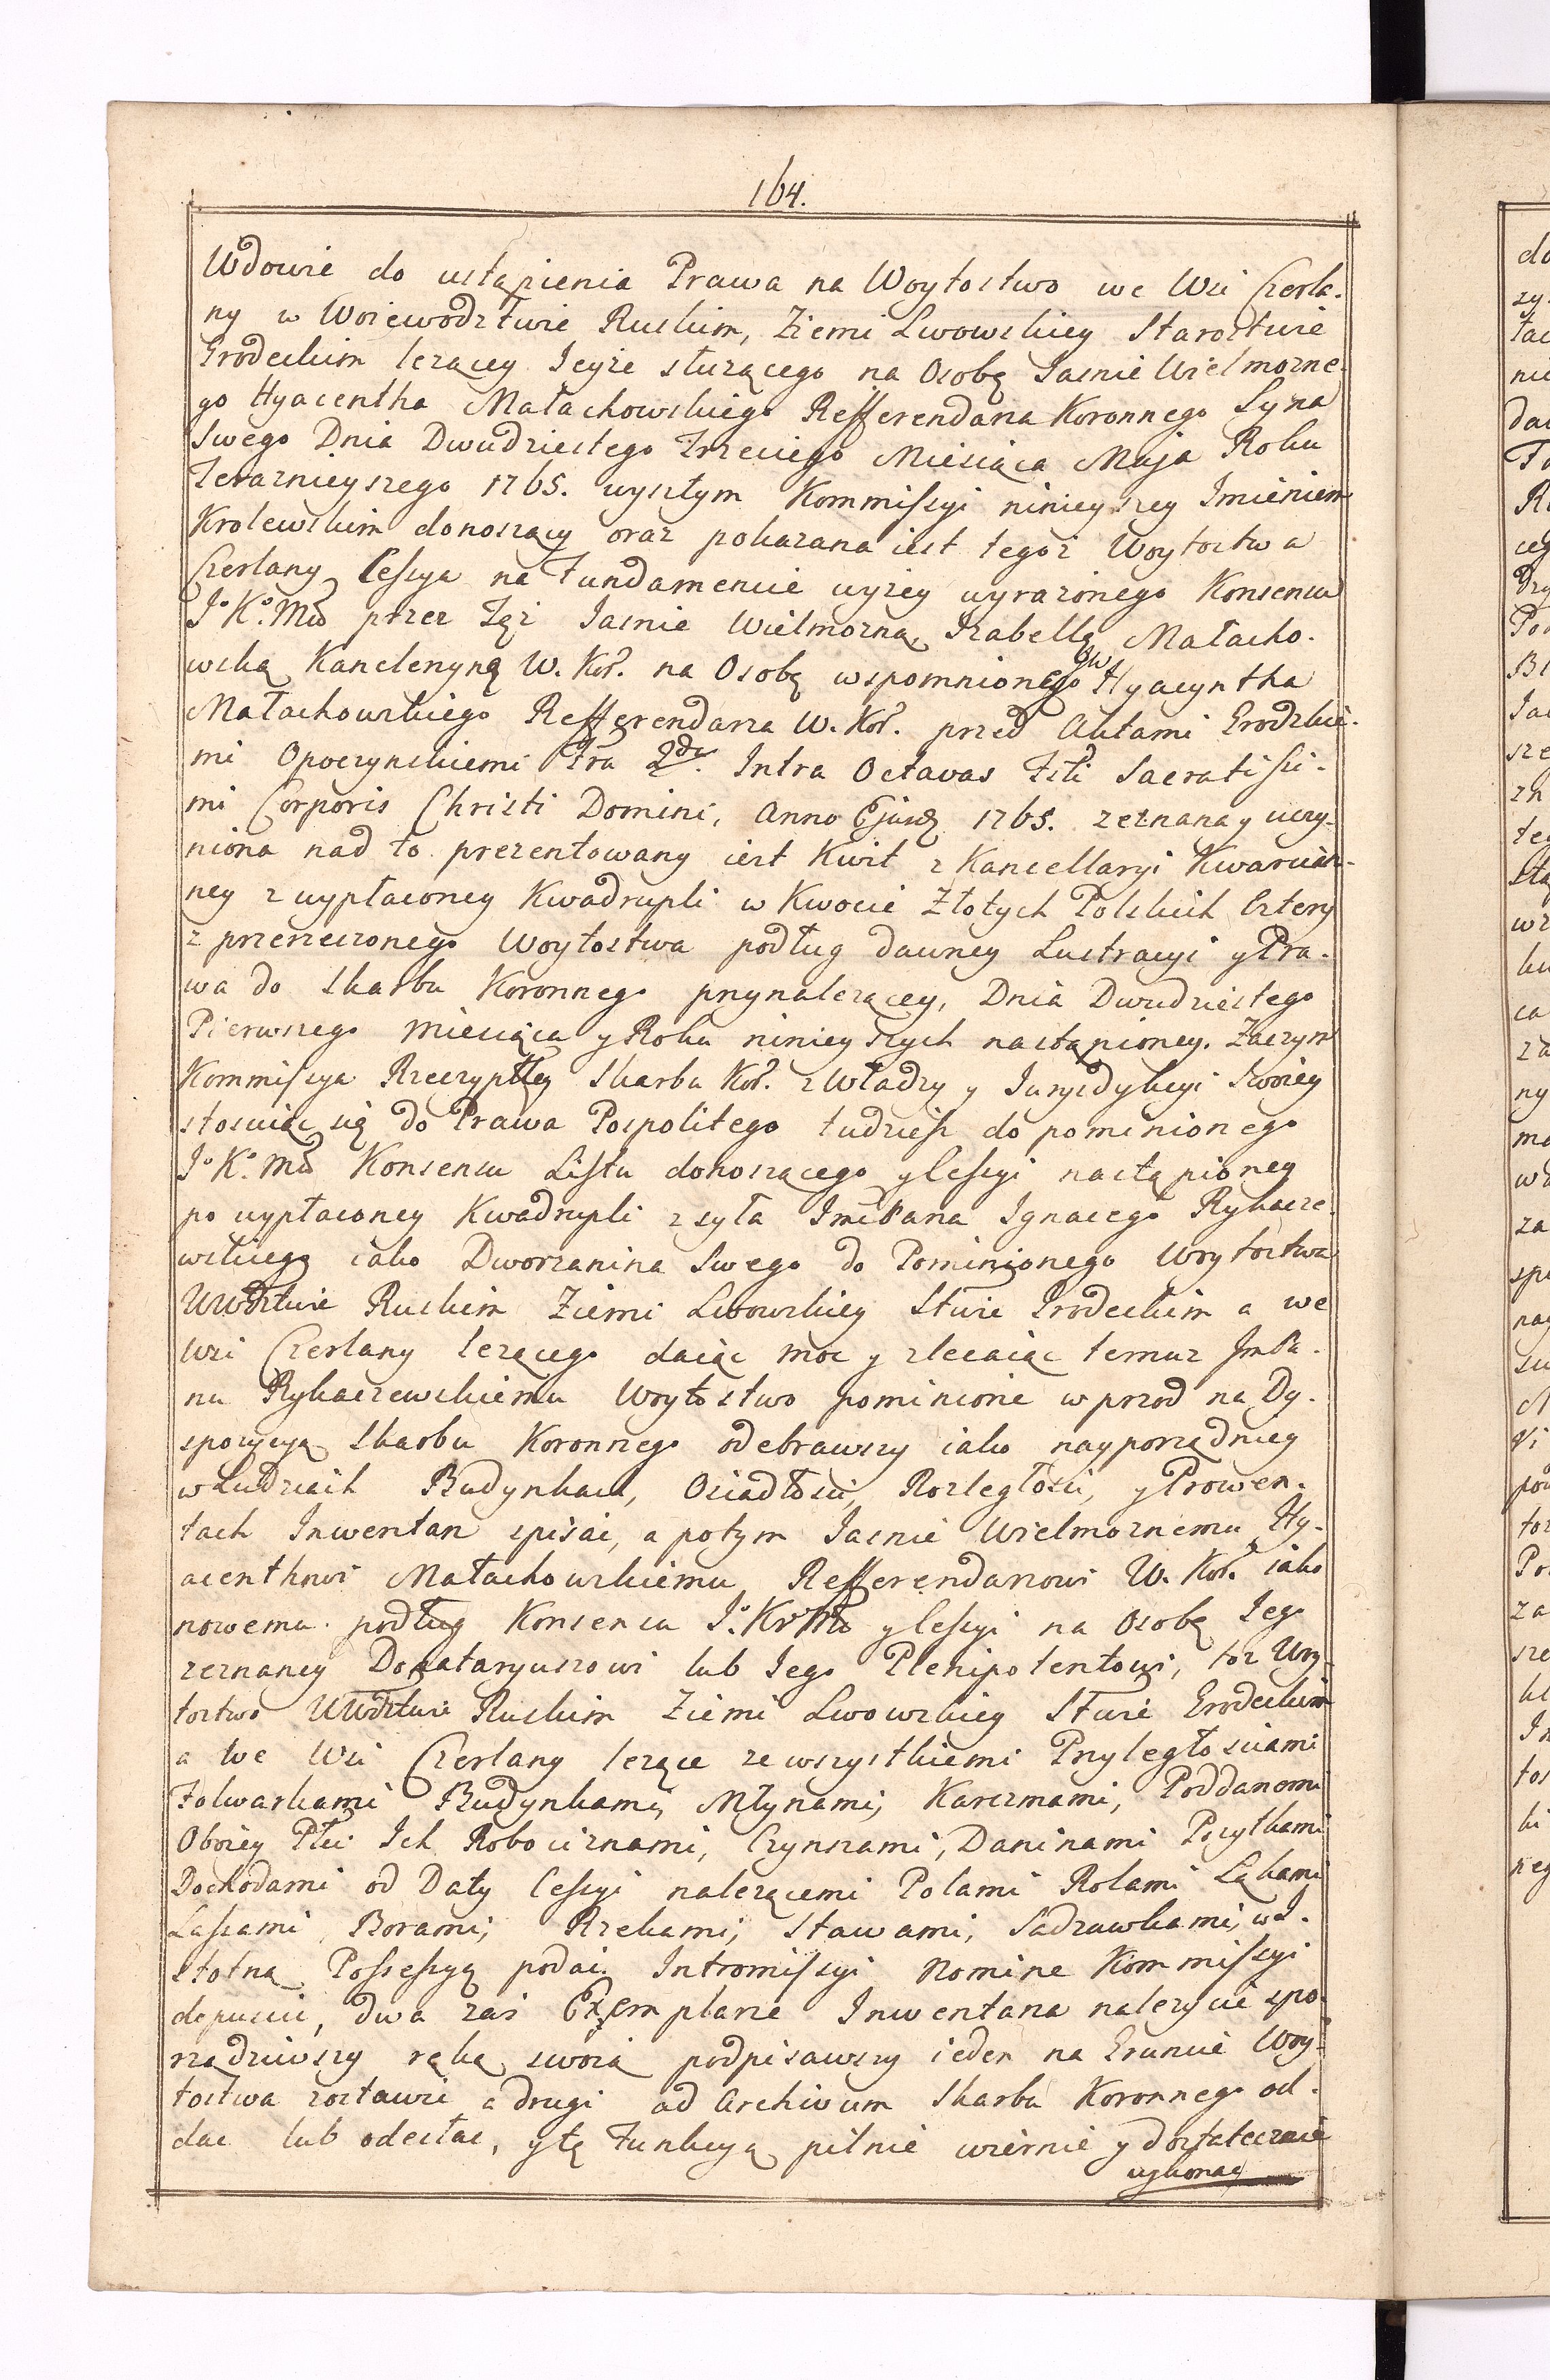 164.
Wdowie do ustąpienia Prawa na Woytostwo we Wsi Czerla-
ny w Woiewodztwie Ruskim, Ziemi Lwowskiey Starostwie
Grodeckim lezącey Jeyże służącego na Osobę Jasnie Wielmozne-
go Hyacentha Małachowskiego Refferendarza Koronnego Syna
Swego Dnia Dwudziestego Trzeciego Miesiąca Maja Roku
Terazniejszego 1765. wyszłym Kommissyi ninieyszey Imieniem
Krolewskim donoszący oraz pokazana iest tegoż Woytostwa
Czerlany Cessya na Fundamencie wyżey wyrażonego Konsensu
J° K° Mci przez Tęż Jasnie Wielmozną Izabellę Małacho-
wską Kanclerzynę W. Kor. na Osobę wspomnionego JW Hyacyntha
Małachowskiego Refferendarza W. Kor. przed Aktami Grodzkie-
mi Opoczynskiemi Fria 2da. Intra Octavas Festi Sacratissi-
mi Corporis Christi Domini, Anno Ejusd 1765. zeznana y uczy-
niona nad to prezentowany iest Kwit z Kancellaryi Kwarcian-
ney z wypłaconey Kwadrupli w Kwocie Złotych Polskich Cztery
z przerzeczonego Woytostwa podług dawney Lustracyi y Pra-
wa do Skarbu Koronnego przynalezącey, Dnia Dwudziestego
Pierwszego Miesiąca y Roku ninieyszych nastąpioney. Zaczym
Kommissya Rzeczypltey Skarbu Kor. z Władzy y Jurysdykcyi Swoiey
stosuiąc się do Prawa Pospolitego tudziesz do pomenionego
J° K° Mci Konsensu Listu donoszącego y Cessyi nastąpioney
po wypłaconey Kwadrupli zsyła Imć Pana Ignacego Rykacze-
wskiego iako Dworzanina Swego do Pomienionego Woytostwa
w Wdztwie Ruskim Ziemi Lwowskiey Stwie Grodeckim a we
Wsi Czerlany lezącego daiąc moc y zlecaiąc temuz Jm Pa-
nu Rykaczewskiemu Woytostwo pomienione w przod na Dy-
spozycyą Skarbu Koronnego odebrawszy iako nayporządniey
w Ludziach Budynkach, Osiadłosci, Rozległosci, y Prowen-
tach Inwentarz spisać, a potym Jasnie Wielmoznemu Hy-
acenthowi Małachowskiemu Refferendarzowi W. Kor. iako
nowemu podług Konsensu J° K° Mci y Cessyi na Osobę Jego
zeznaney Donataryuszowi lub Jego Plenipotentowi, toz Woy-
tostwo w Wdztwie Ruskim Ziemi Lwowskiey Stwie Grodeckim
a we Wsi Czerlany lezące ze wszystkiemi Przyległosciami
Folwarkami Budynkami, Młynami, Karczmami, Poddanemi
Oboiey Płci Ich Robociznami, Czynszami, Daninami Pozytkami
Dochodami od Daty Cessyi nalezącemi Polami Rolami Łąkami
Lasami Borami, Rzekami, Stawami, Sadzawkami, w I-
stotną Possessyą podać. Intromissyi Nomine Kommissyi
depuscić, dwa zaś Exemplarze Inwentarza nalezycie spo-
rządziwszy ręką swoią podpisawszy ieden na Gruncie Woy-
tostwa zostawić a drugi ad Archivum Skarbu Koronnego od-
dac lub odesłac, y tę Funkcyą pilnie wiernie y dostatecznie
wykonać